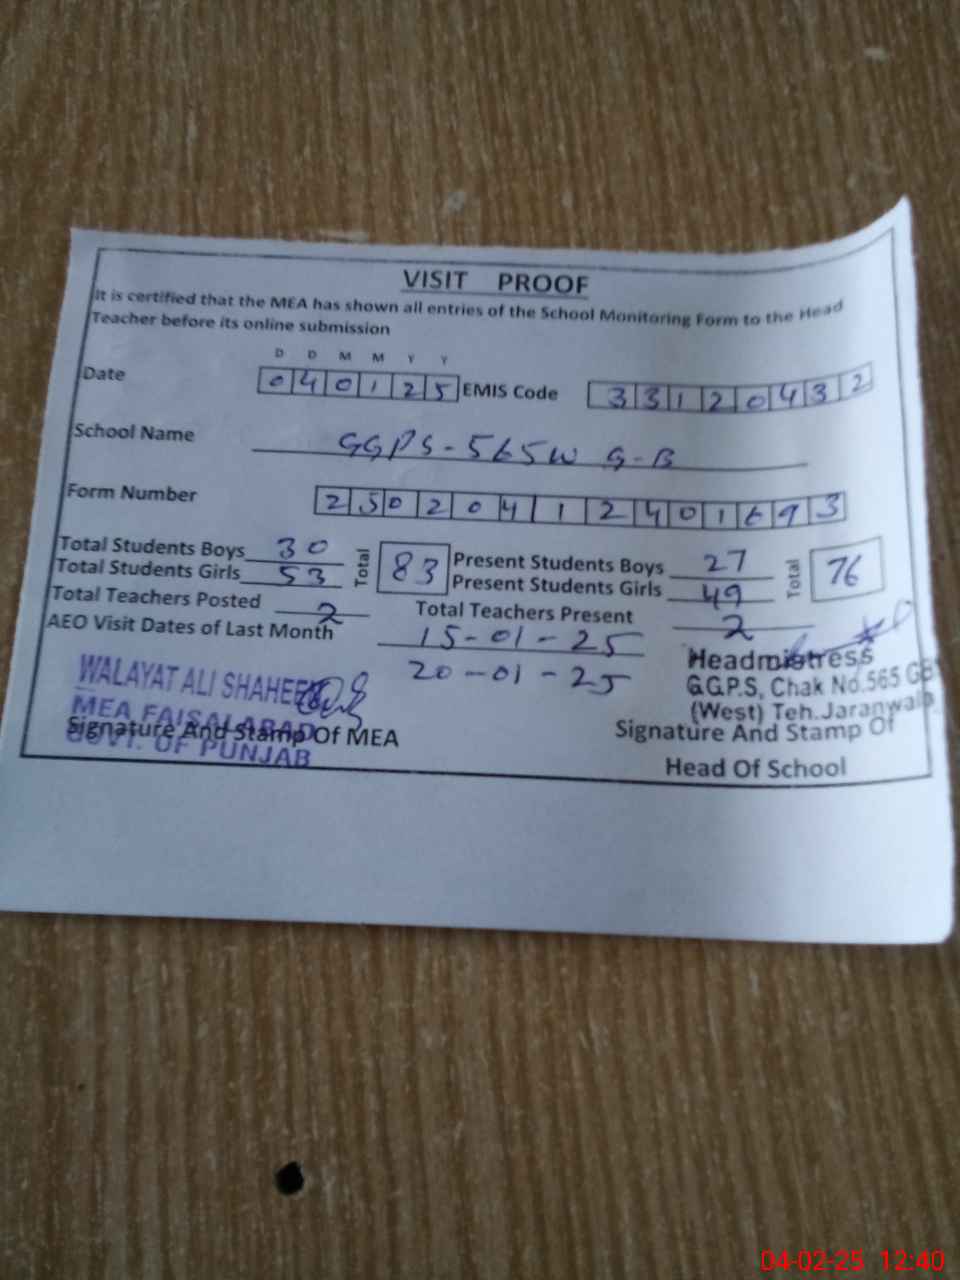 VISIT PROOF
It is certified that the MEA has shown all entries of the School Monitoring Form to the Head
Teacher before its online submission
D D M M Y Y
Date 040125 EMIS Code 33120432
School Name GGPS-565W G-B
Form Number 250204112401693
Total Students Boys 30 Total 83 Present Students Boys 27 Total 76
Total Students Girls 53 Present Students Girls 49
Total Teachers Posted 2 Total Teachers Present 2
AEO Visit Dates of Last Month 15-01-25
20-01-25
WALAYAT ALI SHAHEEN
MEA FAISALABAD
GOVT. OF PUNJAB
Signature And Stamp Of MEA
Headmistress
G.G.P.S, Chak No.565 GB
(West) Teh.Jaranwala
Signature And Stamp Of
Head Of School
04-02-25 12:40